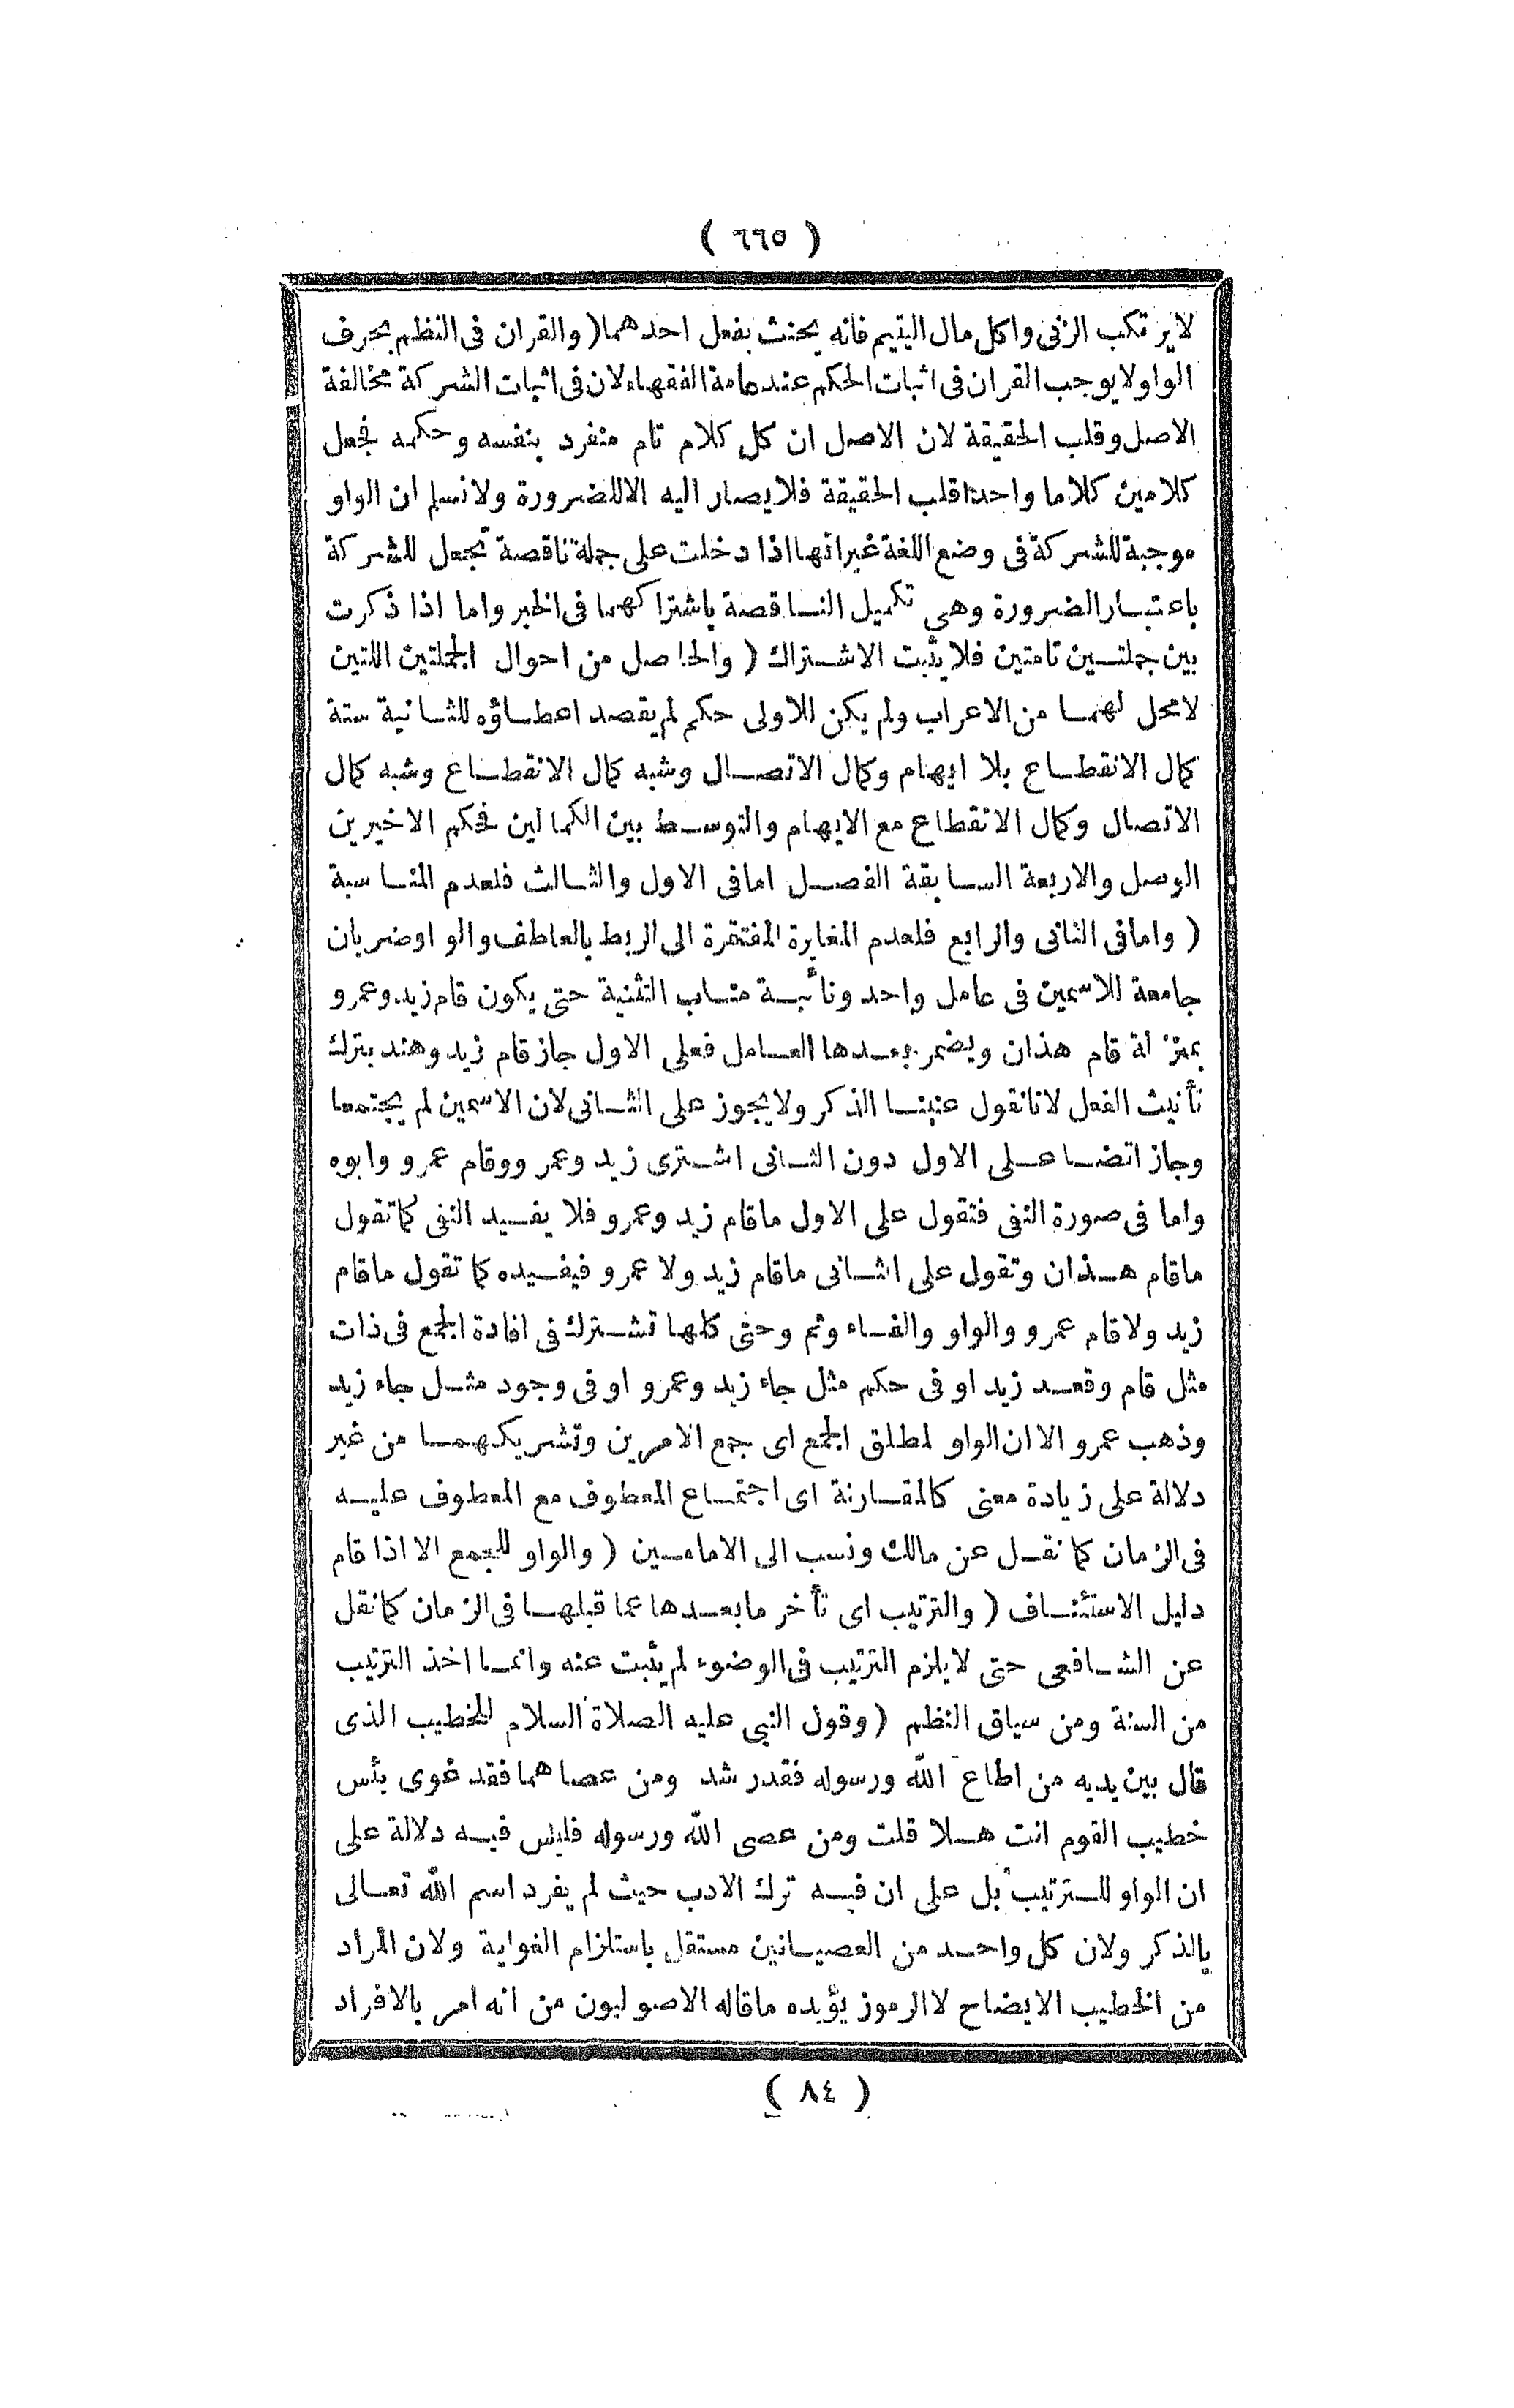 ( ٦٦٥ )
لا يرتكب الزنى واكل مال اليتيم فانه يحنث بفعل احدهما ( والقران فى النظم بحرف
الواو لا يوجب القران فى اثبات الحكم عند عامة الفقهاء لان فى اثبات الشركة مخالفة
الاصل وقلب الحقيقة لان الاصل ان كل كلام تام منفرد بنفسه وحكمه فجعل
كلامين كلاما واحدا قلب الحقيقة فلا يصار اليه الا للضرورة ولا نسلم ان الواو
موجبة للشركة فى وضع اللغة غير انها اذا دخلت على جملة ناقصة تجعل للشركة
باعتبار الضرورة وهى تكميل الناقصة باشتراكهما فى الخبر واما اذا ذكرت
بين جملتين تامتين فلا يثبت الاشتراك ( والحاصل من احوال الجملتين اللتين
لا محل لهما من الاعراب ولم يكن للاولى حكم لم يقصد اعطاؤه للثانية ستة
كمال الانقطاع بلا ايهام وكمال الاتصال وشبه كمال الانقطاع وشبه كمال
الاتصال وكمال الانقطاع مع الايهام والتوسط بين الكمالين فحكم الاخيرين
الوصل والاربعة السابقة الفصل اما فى الاول والثالث فلعدم المناسبة
( واما فى الثانى والرابع فلعدم المغايرة المفتقرة الى الربط بالعاطف والواو ضربان
جامعة للاسمين فى عامل واحد ونائبة مناب التثنية حتى يكون قام زيد وعمرو
بمنزلة قام هذان ويضمر بعدها العامل فعلى الاول جاز قام زيد وهند بترك
تأنيث الفعل لانا نقول غلبنا الذكر ولا يجوز على الثانى لان الاسمين لم يجتمعا
وجاز ايضا على الاول دون الثانى اشترى زيد وعمرو وقام عمرو وابوه
واما فى صورة النفى فتقول على الاول ما قام زيد وعمرو فلا يفسيد النفى كما تقول
ما قام هذان وتقول على الثانى ما قام زيد ولا عمرو فيفسيده كما تقول ما قام
زيد ولا قام عمرو والواو والفاء وثم وحتى كلها تشترك فى افادة الجمع فى ذات
مثل قام وقعد زيد او فى حكم مثل جاء زيد وعمرو او فى وجود مثل جاء زيد
وذهب عمرو الا ان الواو لمطلق الجمع اى جمع الامرين وتشريكهما من غير
دلالة على زيادة معنى كالمقارنة اى اجتماع المعطوف مع المعطوف عليه
فى الزمان كما نقل عن مالك ونسب الى الامامين ( والواو للجمع الا اذا قام
دليل الاستئناف ( والترتيب اى تأخر ما بعدها عما قبلها فى الزمان كما نقل
عن الشافعى حتى لا يلزم الترتيب فى الوضوء لم يثبت عنه وانما اخذ الترتيب
من السنة ومن سياق النظم ( وقول النبى عليه الصلاة السلام للخطيب الذى
قال بين يديه من اطاع الله ورسوله فقد رشد ومن عصاهما فقد غوى بئس
خطيب القوم انت هلا قلت ومن عصى الله ورسوله فليس فيه دلالة على
ان الواو للترتيب بل على ان فيه ترك الادب حيث لم يفرد اسم الله تعالى
بالذكر ولان كل واحد من العصيانين مستقل باستلزام الغواية ولان المراد
من الخطيب الايضاح لا الرموز يؤيده ما قاله الاصوليون من انه امر بالافراد
( ٨٤ )